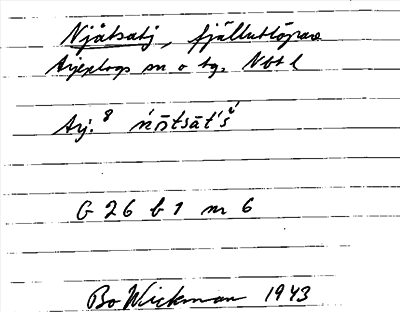 Njåtsatj, fjällutlöpare
Arjeplogs sn o tg. Nbt l
Arj. 8 ńō̭tsāt́š́
G 26 b 1 nr 6
Bo Wickman 1943